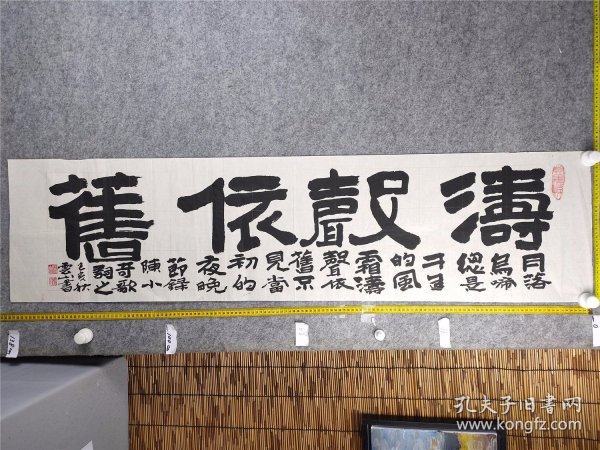 濤聲依舊
月落
烏啼
總是
千年
的風
霜濤
聲依
舊不
見當
初的
夜晚
節錄
陳小
奇歌
詞之
孔夫子旧书网
www.kongfz.com